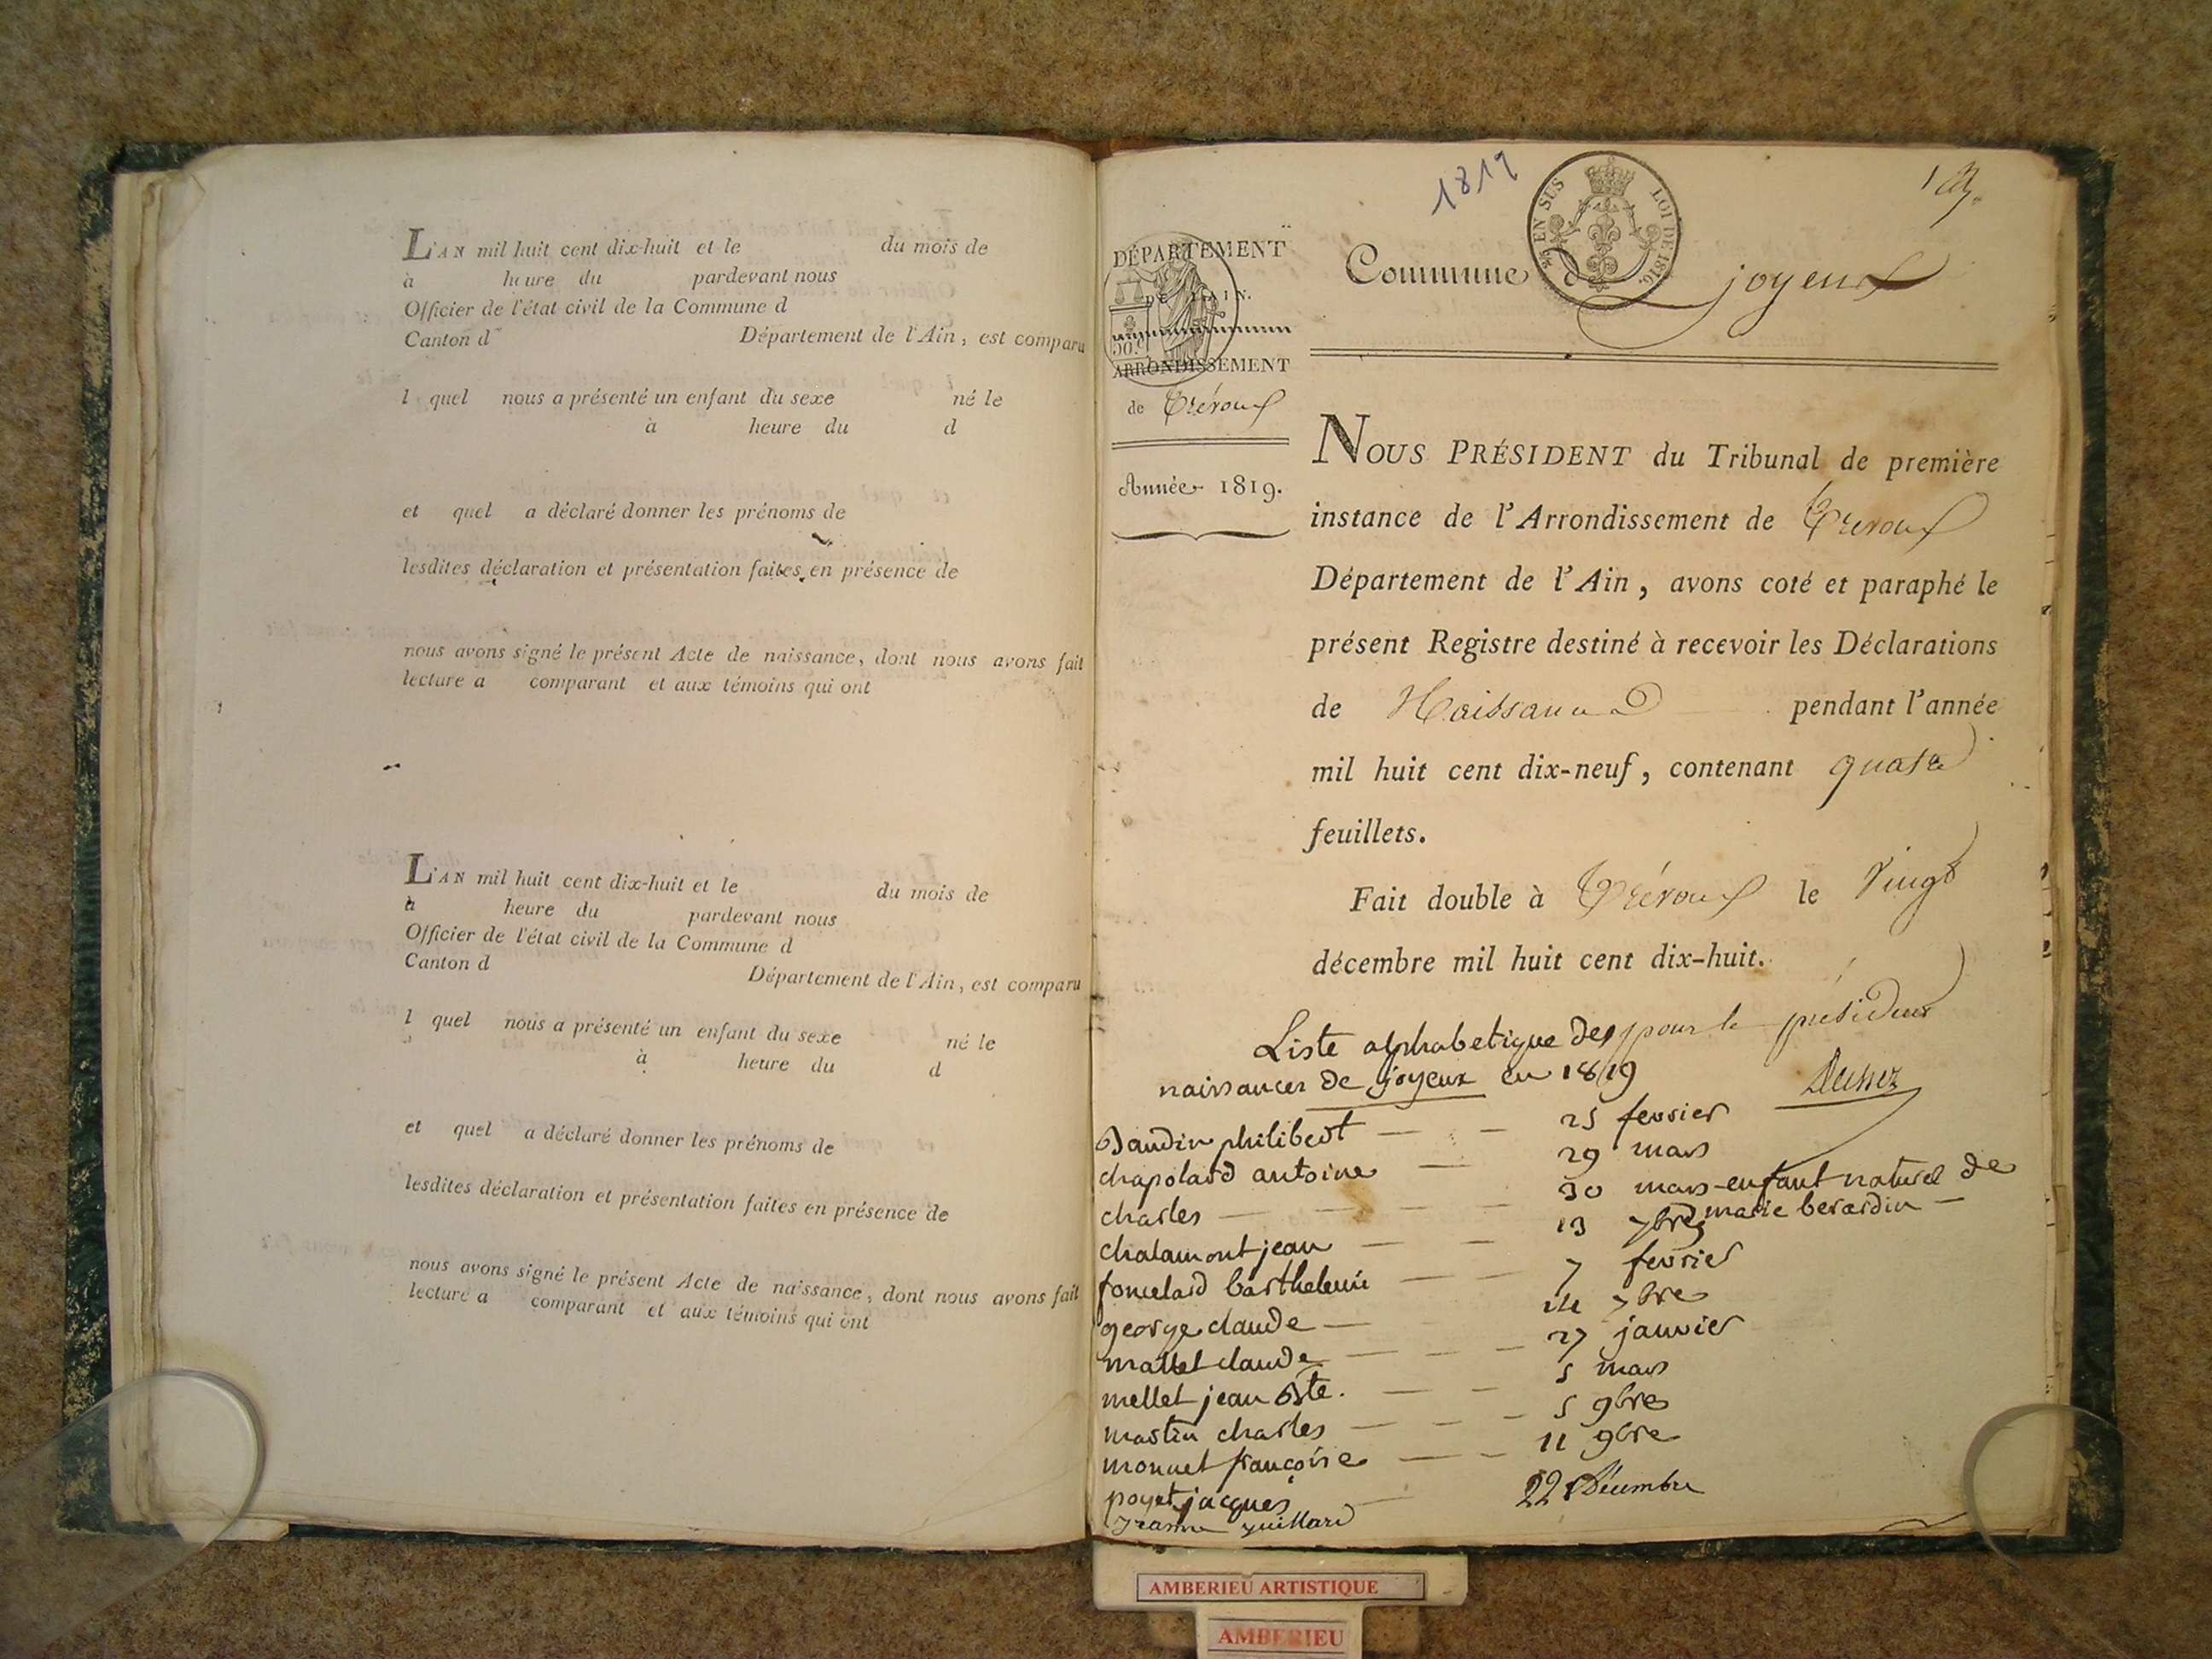 L'AN mil huit cent dix-huit et le du mois de
à heure du pardevant nous
Officier de l'état civil de la Commune d
Canton d Département de l'Ain, est comparu
l quel nous a présenté un enfant du sexe né le
à heure du d
et quel a déclaré donner les prénoms de
lesdites déclaration et présentation faites en présence de
nous avons signé le présent Acte de naissance, dont nous avons fait
lecture a comparant et aux témoins qui ont
L'AN mil huit cent dix-huit et le du mois de
à heure du pardevant nous
Officier de l'état civil de la Commune d
Canton d
Département de l'Ain, est comparu
l quel nous a présenté un enfant du sexe né le
à heure du d
et quel a déclaré donner les prénoms de
lesdites déclaration et présentation faites en présence de
nous avons signé le présent Acte de naissance, dont nous avons fait
lecture a comparant et aux témoins qui ont
1819
EN SUS LOI DE 1816.
DÉPARTEMENT
DE L'AIN.
50.c
ARRONDISSEMENT
de Trévoux
Année 1819.
Commune de joyeux
NOUS PRÉSIDENT du Tribunal de première
instance de l'Arrondissement de Trevoux
Département de l'Ain, avons coté et paraphé le
présent Registre destiné à recevoir les Déclarations
de Naissance pendant l'année
mil huit cent dix-neuf, contenant quatre
feuillets.
Fait double à Trévoux le Vingt
décembre mil huit cent dix-huit.
pour le président
Liste alphabetique des
naissances de joyeux en 1819
Baudin philibert — — 25 fevrier
chapolard antoine — 29 mars
charles — — — — 30 mars enfant naturel de
marie berardin —
chalamont jean — — 13 7bre
foncelard barthelemie — — 7 fevrier
george claude — 24 7bre
mallet claude — — — 27 janvier
mellet jean Bte. — — 5 mars
martin charles — — — 5 9bre
monnet françoise — — 11 9bre
poyet jacques — 22 Décembre
Jeanne juillard
AMBERIEU ARTISTIQUE
AMBERIEU